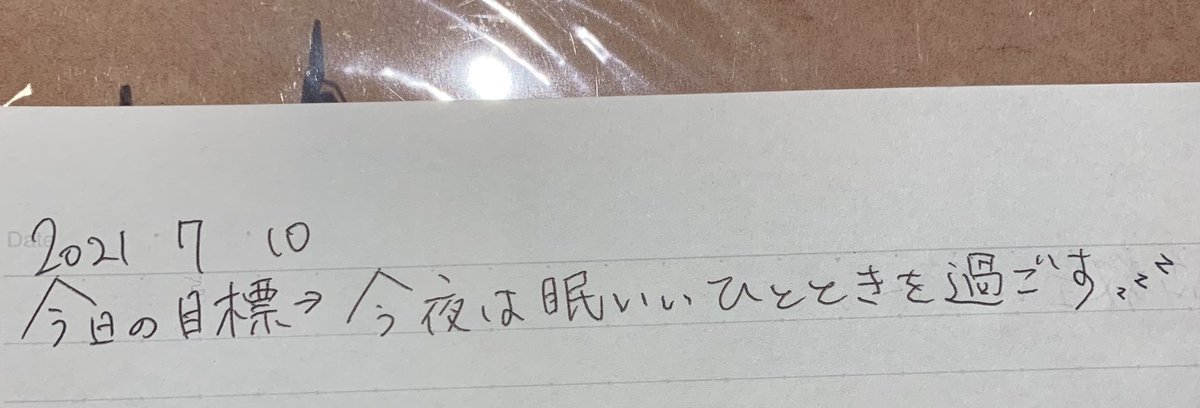 Date
2021 7 10
今日の目標→今夜は眠いいひとときを過ごすzzz